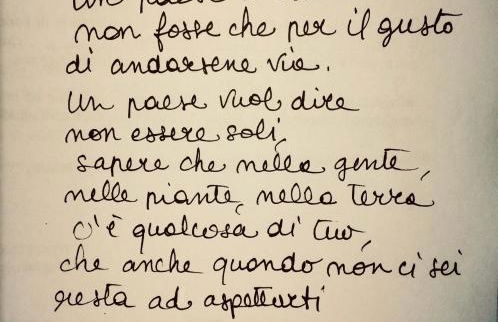 un paese
non fosse che per il gusto
di andarsene via.
Un paese vuol dire
non essere soli,
sapere che nella gente,
nelle piante, nella terra
c'è qualcosa di tuo,
che anche quando non ci sei
resta ad aspettarti